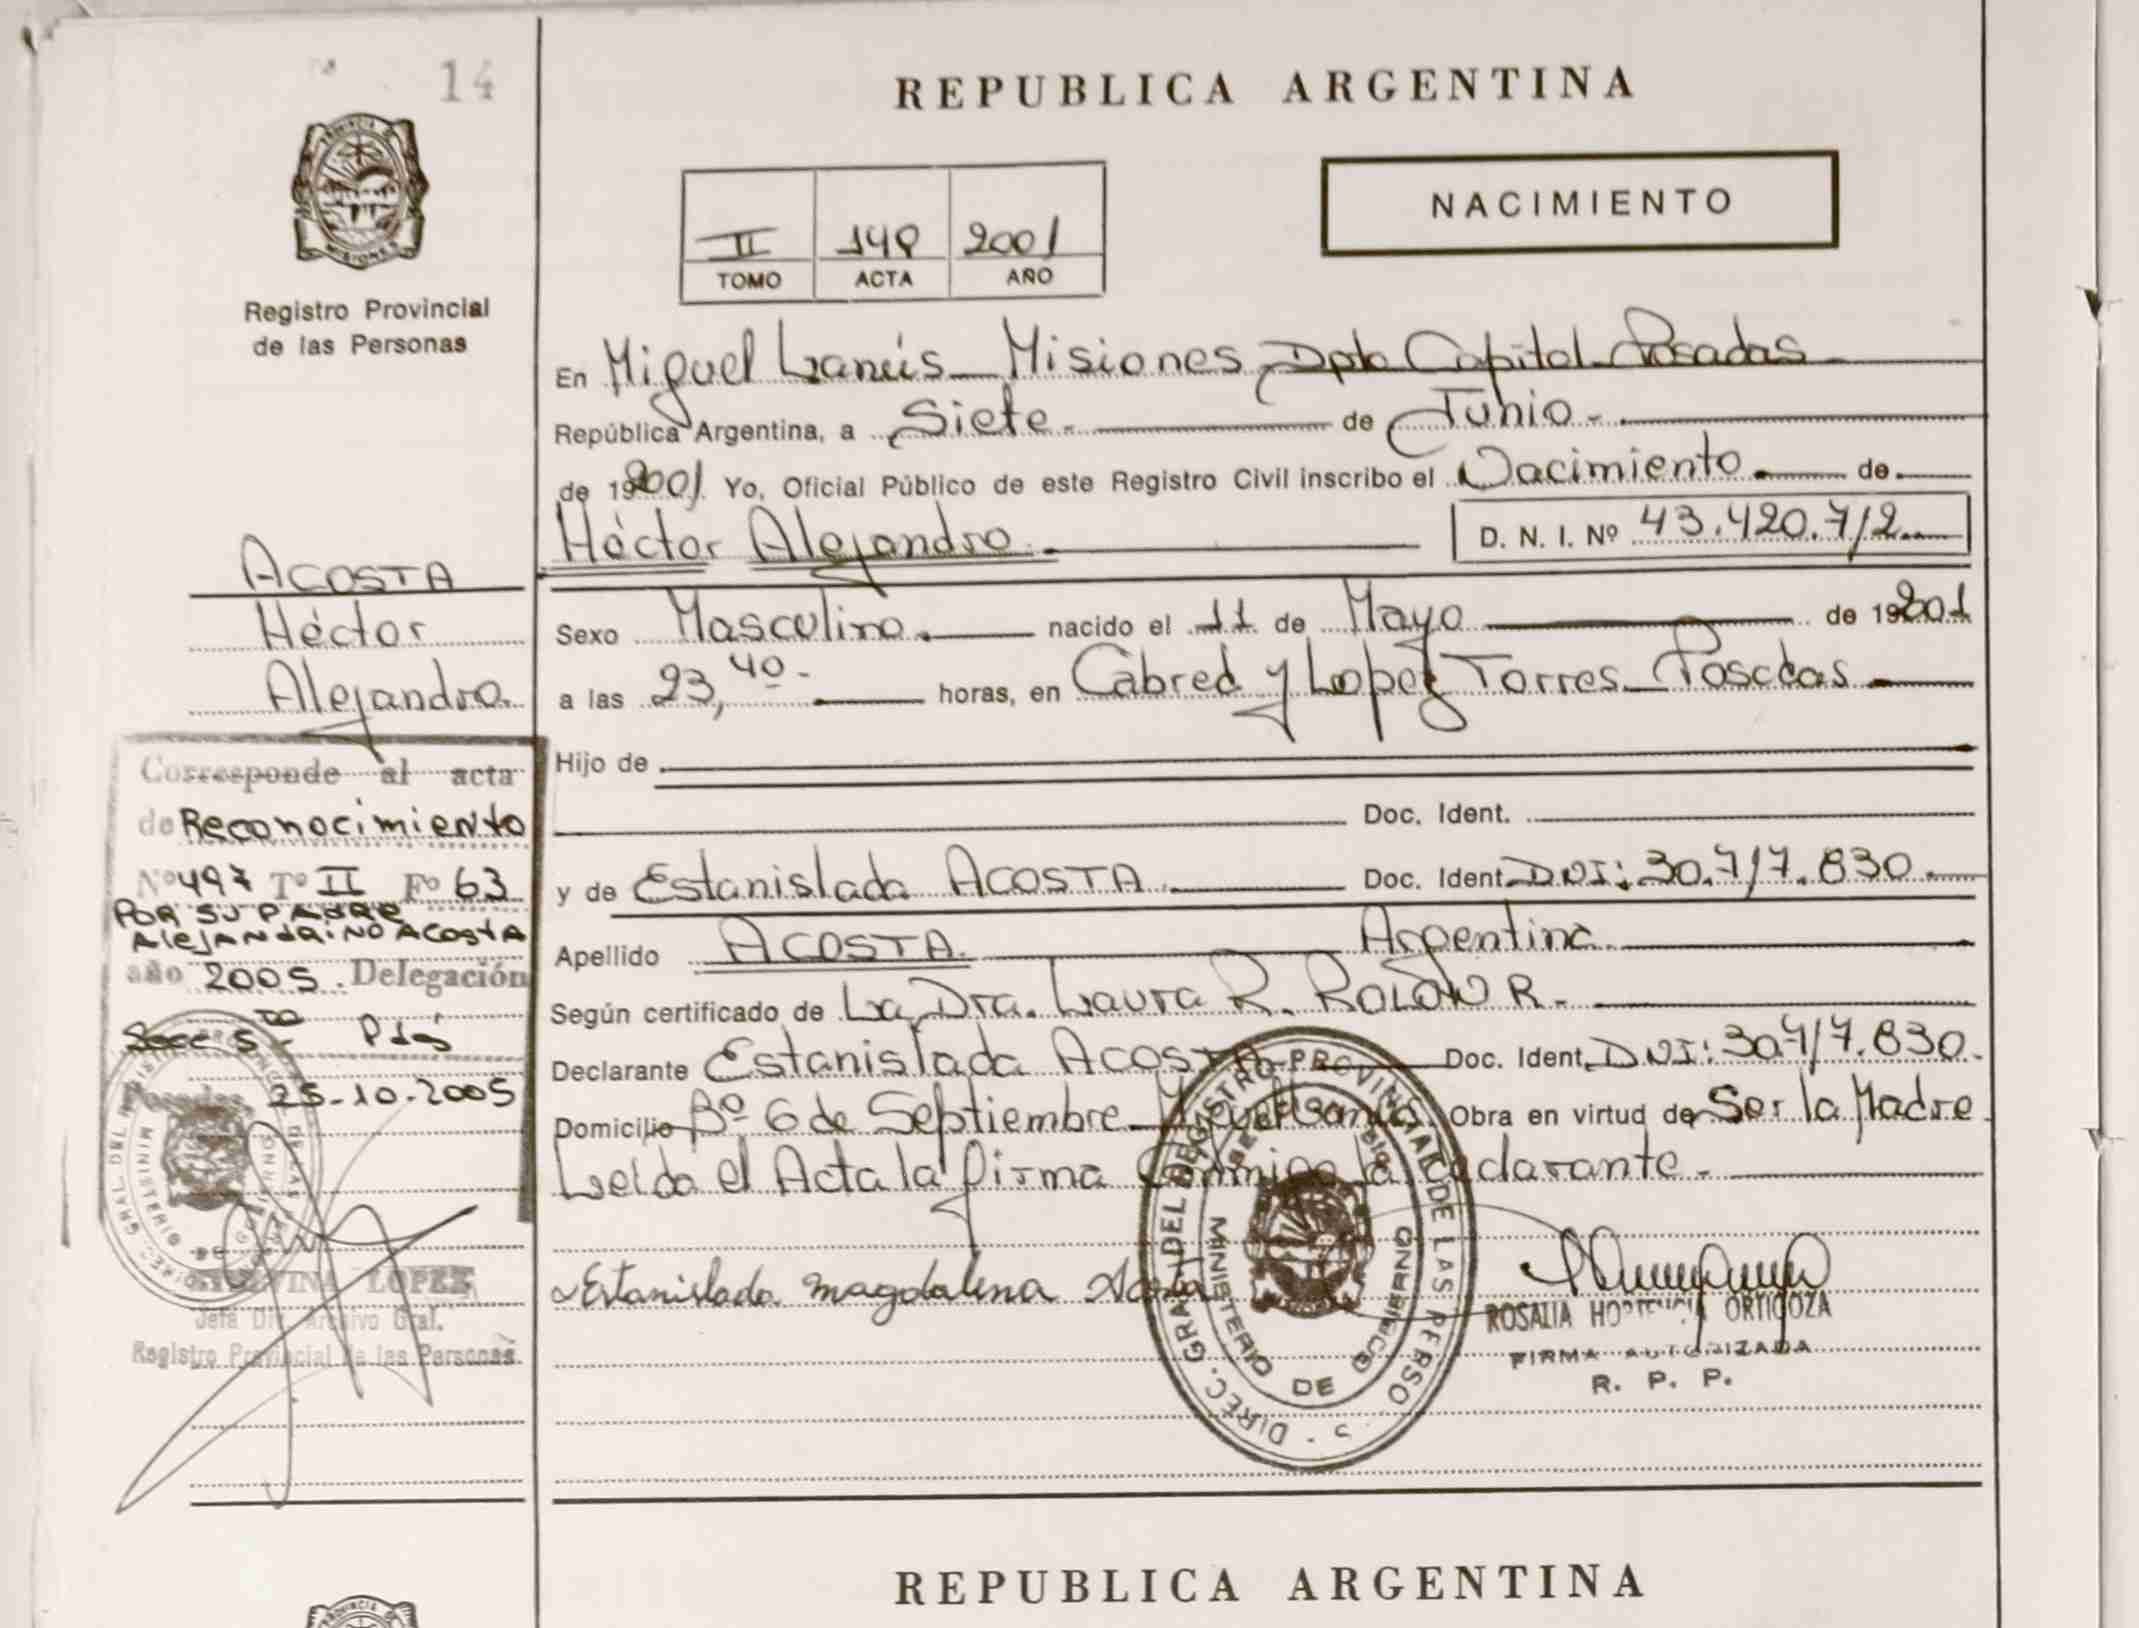 14
PROVINCIA DE
MISIONES
Registro Provincial
de las Personas
REPUBLICA ARGENTINA
NACIMIENTO
II 148 2001
TOMO ACTA AÑO
En Miguel Lanús - Misiones Dpto Capital - Posadas -
República Argentina, a Siete. - de Junio. -
de 192001 Yo, Oficial Público de este Registro Civil inscribo el Nacimiento. - de
Héctor Alejandro. - D. N. I. Nº 43.420.712
Sexo Masculino. - nacido el 11 de Mayo - de 192001
a las 23,40 - horas, en Cabred y Lopez Torres - Posadas -
Hijo de
Doc. Ident.
y de Estanislada ACOSTA. - Doc. Ident. DNI: 30.717.830. -
Apellido ACOSTA. - Argentina. -
Según certificado de La Dra. Laura R. ROLÓN R. -
Declarante Estanislada Acosta - Doc. Ident. DNI: 30.717.830. -
Domicilio Bº 6 de Septiembre - Miguel Lanús Obra en virtud de Ser la Madre
Leida el Acta la firma conmigo la declarante. -
Estanislada magdalena Acosta
ROSALIA HORTENCIA ORTIGOZA
FIRMA AUTORIZADA
R. P. P.
DIREC. GRAL. DEL REGISTRO PROVINCIAL DE LAS PERSONAS
MINISTERIO DE GOBIERNO
ACOSTA
Héctor
Alejandro.
Corresponde al acta
de Reconocimiento
Nº 497 Tº II Fº 63
POR SU PADRE
AleJANdriNO ACOSTA
año 2005. Delegación
Secc 5ta Pdas
Posadas, 25-10-2005
LOPEZ
Jefa Div. Archivo Gral.
Registro Provincial de las Personas
REPUBLICA ARGENTINA
PROVINCIA DE